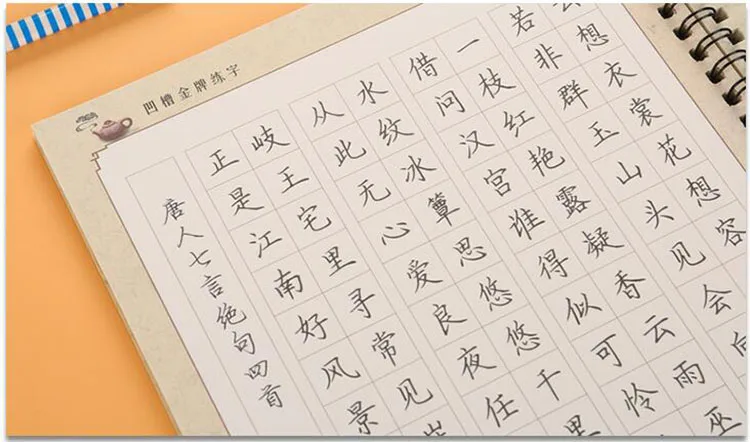 凹槽金牌练字
云想衣裳花想容
若非群玉山头见会向
一枝红艳露凝香云雨巫
借问汉宫谁得似可怜
水纹冰簟思悠悠千里
从此无心爱良夜任
岐王宅里寻常见
正是江南好风景
唐人七言绝句四首